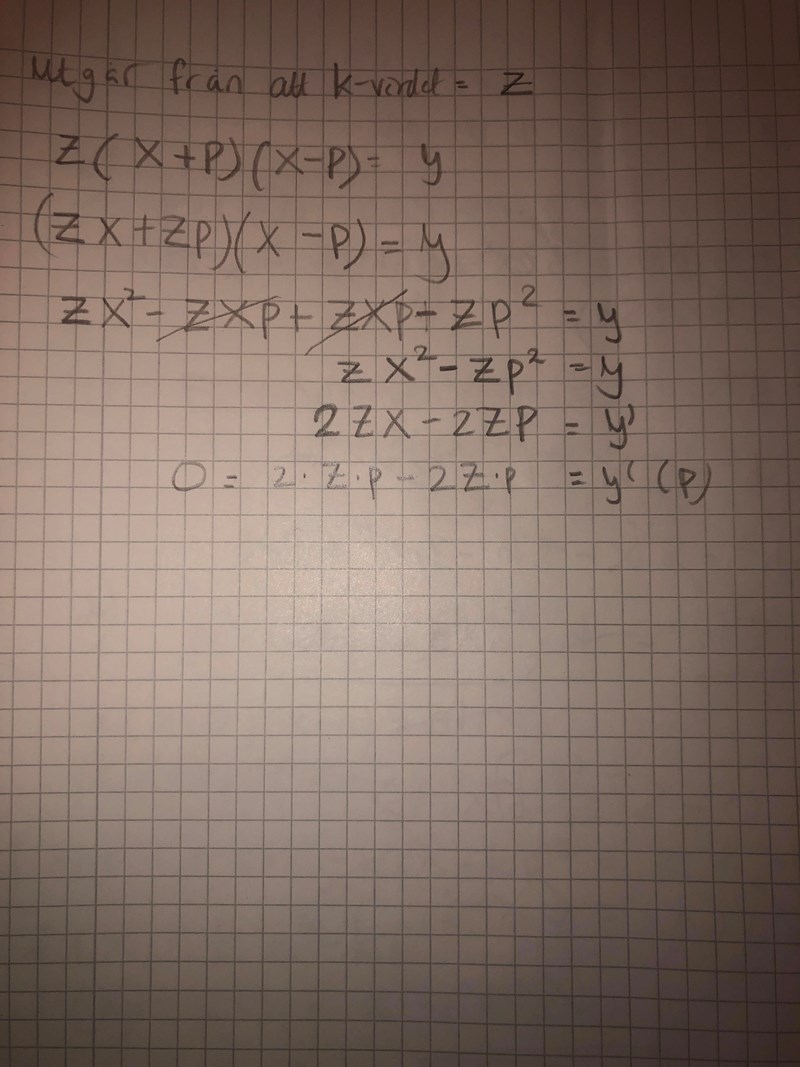 Utgår från att k-värdet = z
z(x+p)(x-p)= y
(zx+zp)(x-p)=y
zx²- zxp+ zxp- zp² = y
zx²-zp² =y
2zx-2zp = y'
0 = 2·z·p-2z·p = y'(p)